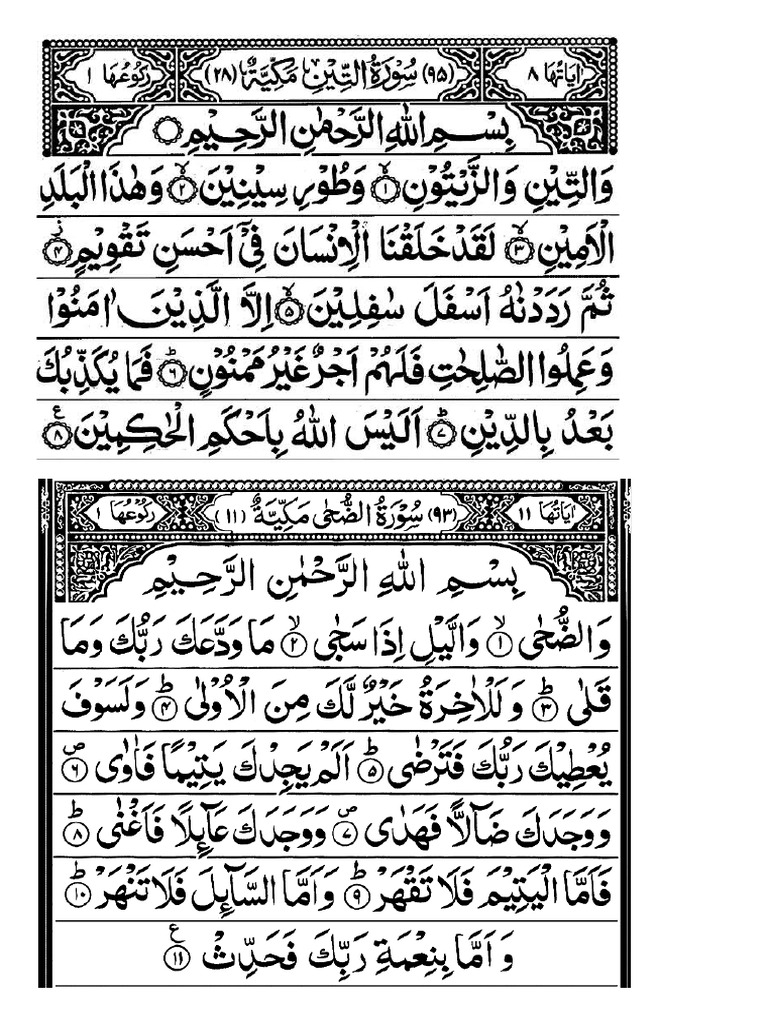 اٰيَاتُهَا ٨ (٩٥) سُوْرَةُ التِّيْنِ مَكِّيَّةٌ (٢٨) رُكُوْعُهَا ١
بِسْمِ اللّٰهِ الرَّحْمٰنِ الرَّحِيْمِ
وَالتِّيْنِ وَالزَّيْتُوْنِ ۙ﴿١﴾ وَطُوْرِ سِيْنِيْنَ ۙ﴿٢﴾ وَهٰذَا الْبَلَدِ
الْاَمِيْنِ ۙ﴿٣﴾ لَقَدْ خَلَقْنَا الْاِنْسَانَ فِيْۤ اَحْسَنِ تَقْوِيْمٍ ؗ﴿٤﴾
ثُمَّ رَدَدْنٰهُ اَسْفَلَ سٰفِلِيْنَ ۙ﴿٥﴾ اِلَّا الَّذِيْنَ اٰمَنُوْا
وَعَمِلُوا الصّٰلِحٰتِ فَلَهُمْ اَجْرٌ غَيْرُ مَمْنُوْنٍ ؕ﴿٦﴾ فَمَا يُكَذِّبُكَ
بَعْدُ بِالدِّيْنِ ؕ﴿٧﴾ اَلَيْسَ اللّٰهُ بِاَحْكَمِ الْحٰكِمِيْنَ ﴿٨﴾ ع
اٰيَاتُهَا ١١ (٩٣) سُوْرَةُ الضُّحٰى مَكِّيَّةٌ (١١) رُكُوْعُهَا ١
بِسْمِ اللّٰهِ الرَّحْمٰنِ الرَّحِيْمِ
وَالضُّحٰى ۙ﴿١﴾ وَالَّيْلِ اِذَا سَجٰى ۙ﴿٢﴾ مَا وَدَّعَكَ رَبُّكَ وَمَا
قَلٰى ؕ﴿٣﴾ وَلَلْاٰخِرَةُ خَيْرٌ لَّكَ مِنَ الْاُوْلٰى ؕ﴿٤﴾ وَلَسَوْفَ
يُعْطِيْكَ رَبُّكَ فَتَرْضٰى ؕ﴿٥﴾ اَلَمْ يَجِدْكَ يَتِيْمًا فَاٰوٰى ۪﴿٦﴾
وَوَجَدَكَ ضَآلًّا فَهَدٰى ۪﴿٧﴾ وَوَجَدَكَ عَآئِلًا فَاَغْنٰى ؕ﴿٨﴾
فَاَمَّا الْيَتِيْمَ فَلَا تَقْهَرْ ؕ﴿٩﴾ وَاَمَّا السَّآئِلَ فَلَا تَنْهَرْ ؕ﴿١٠﴾
وَاَمَّا بِنِعْمَةِ رَبِّكَ فَحَدِّثْ ﴿١١﴾ ع